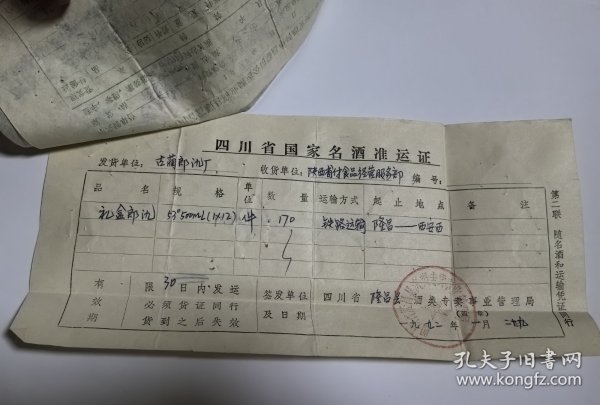 四川省国家名酒准运证
发货单位：古蔺郎酒厂 收货单位：陕西省付食品经营服务部 编号：
品名 规格 单位 数量 运输方式 起止地点 备注
礼盒郎氿 53°500ml(1×12) 件 170 铁路运输 隆昌——西安西
有效期 限30日内发运 必须货证同行 货到之后失效 签发单位及日期 四川省 隆昌县 酒类专卖事业管理局
一九九二年一月二十九
第二联 随名酒和运输凭证同行
孔夫子旧书网
www.kongfz.com